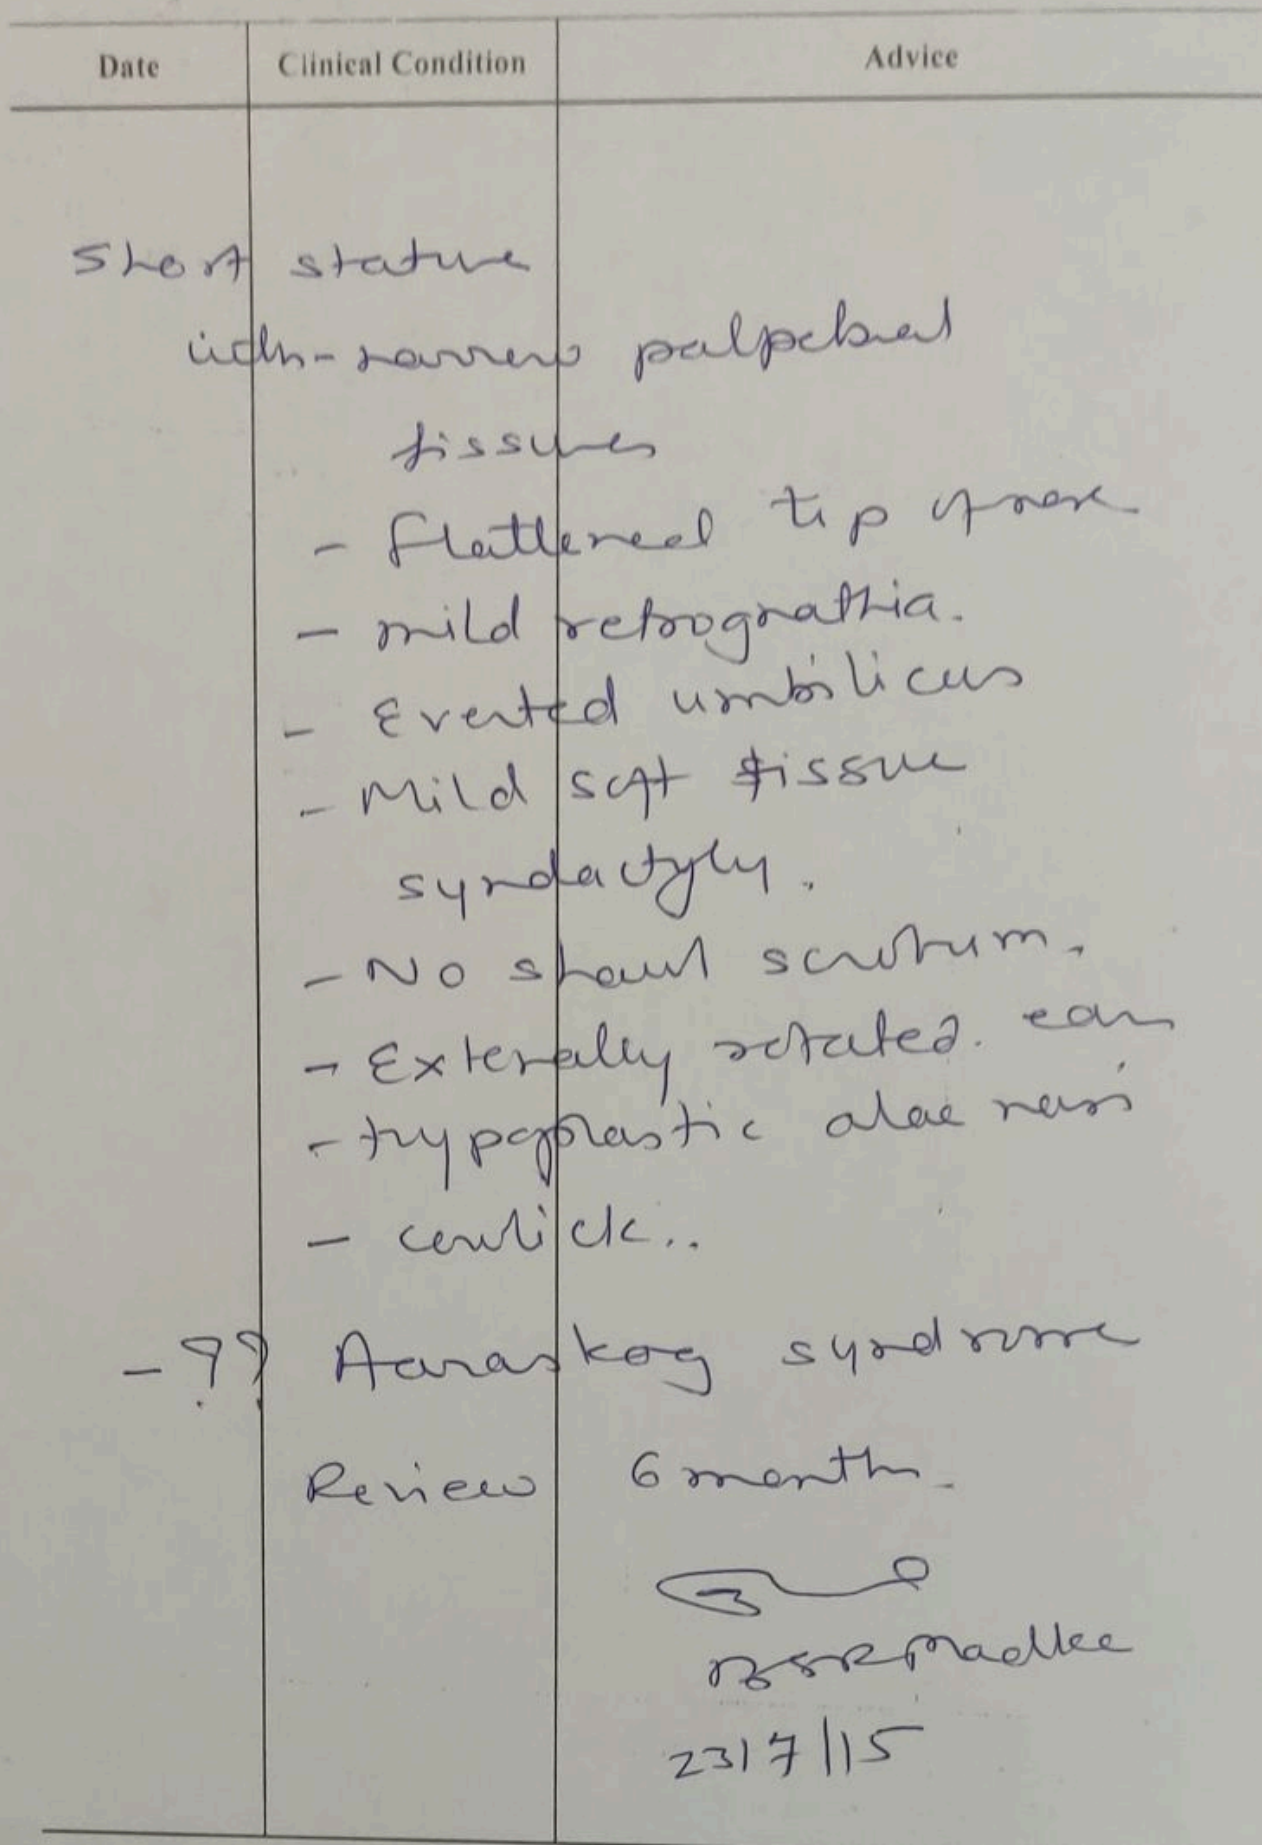 Date Clinical Condition Advice
Short stature
with - narrow palpebral
fissures
- Flattened tip of nose
- mild retrognathia.
- Everted umbilicus
- Mild soft tissue
syndactyly.
- No shawl scrotum.
- Externally rotated. ears
- Hypoplastic alae nasi
- cowlick..
- ?? Aaraskog syndrome
Review 6 months.
Phadke
23/7/15